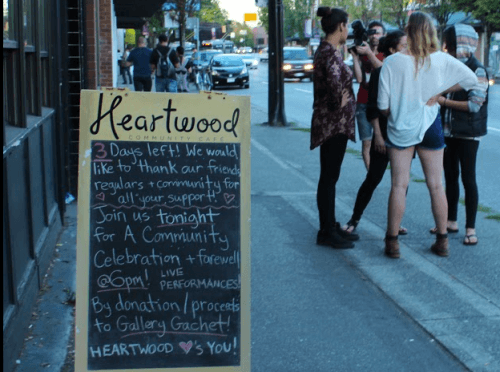 Heartwood
COMMUNITY CAFE
3 Days left! We would
like to thank our friends
regulars + community for
all your support!
Join us tonight
for A Community
Celebration + farewell
@6pm! LIVE PERFORMANCES!
By donation/proceeds
to Gallery Gachet!
HEARTWOOD ♥'s YOU!